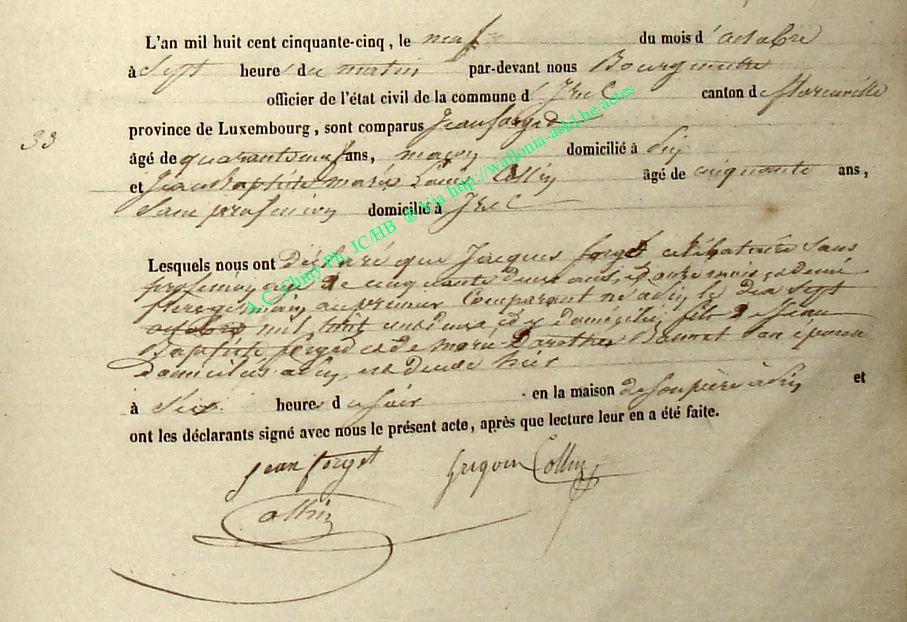 L'an mil huit cent cinquante-cinq, le neuf du mois d'octobre
à Sept heures du matin par-devant nous Bourgmestre
officier de l'état civil de la commune d'Izel canton de florenville
33
province de Luxembourg, sont comparus Jean forget
âgé de quarante neuf ans, maçon domicilié à Pin
et Jean Baptiste marie Louis Collin âgé de cinquante ans,
Sans profession domicilié à Izel
Lesquels nous ont déclaré que Jacques forget célibataire Sans
profession agé de cinquante deux ans, onze mois et demi
frere germain au premier Comparant né à Pin le dix Sept
octobre mil huit cent deux et y domicilié, fils de Jean
Baptiste forget et de marie Dorothée son épouse
domiciliés à Pin est décédé hier
à Six heures du Soir en la maison de Son père à Pin et
ont les déclarants signé avec nous le présent acte, après que lecture leur en a été faite.
Jean forget Collin
Collin
A.C. Chiny Ph. JC/HB ® Via http://wallonia-asbl.be/actes